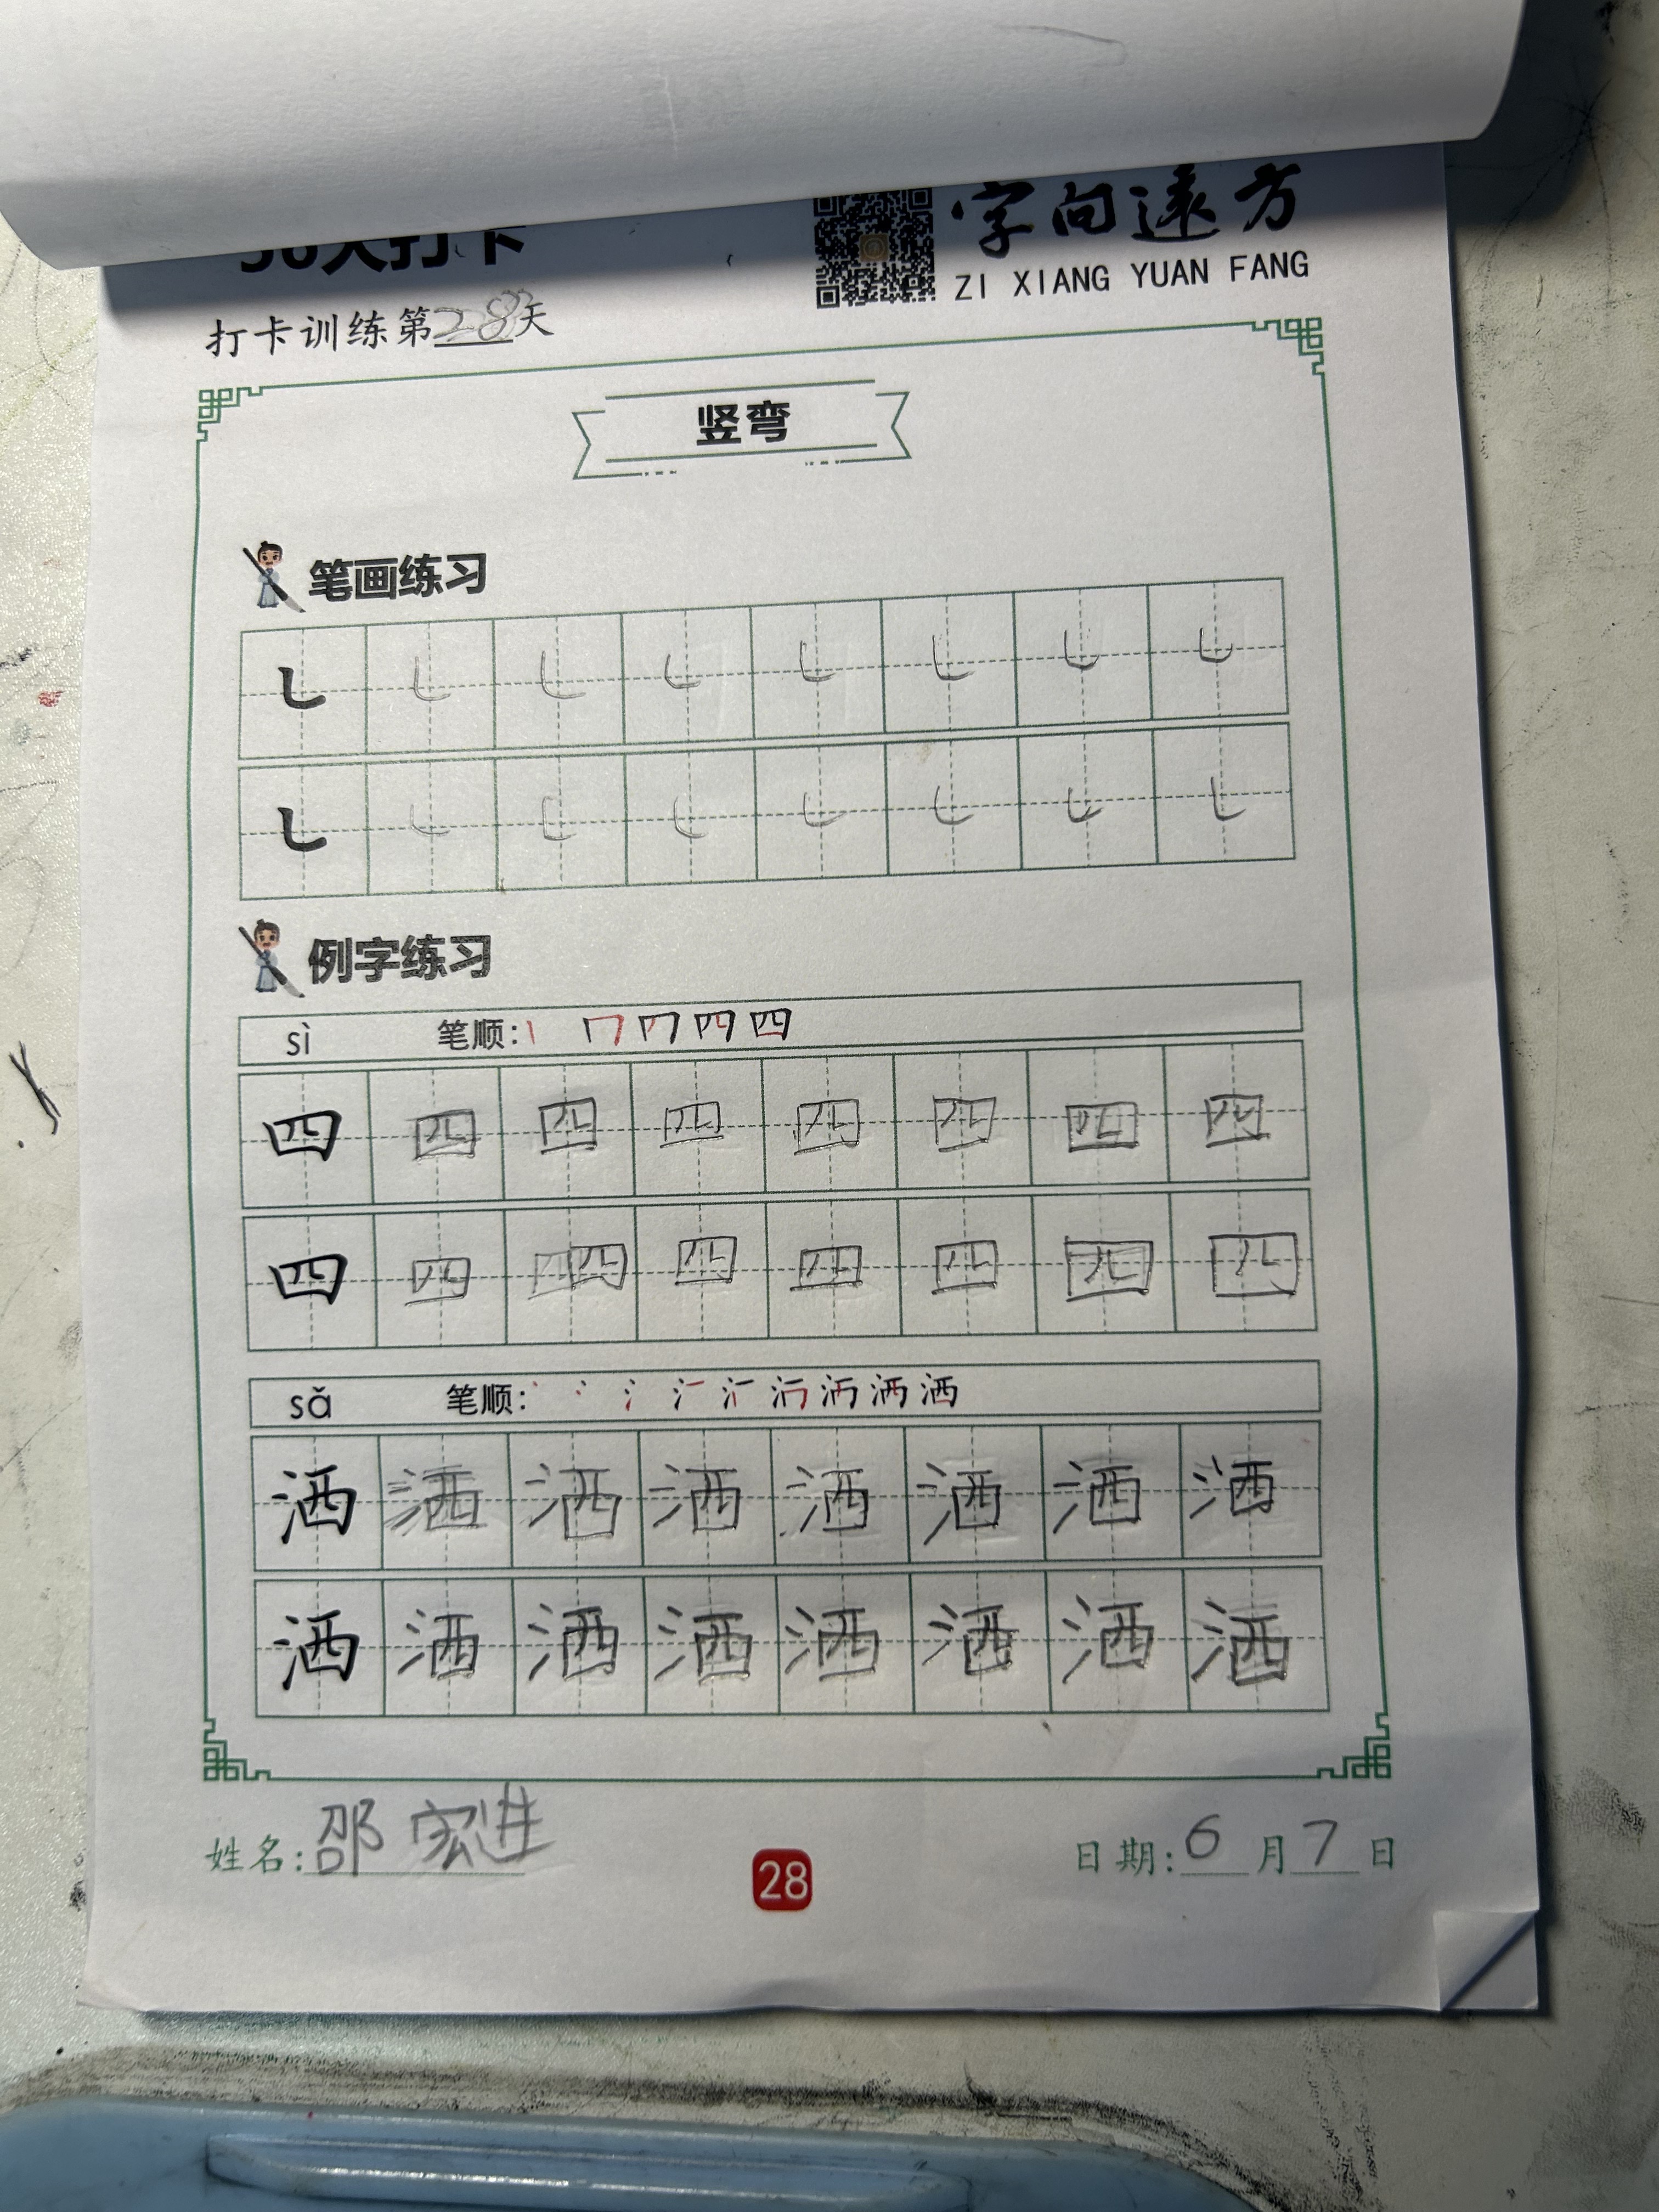 字向遠方
ZI XIANG YUAN FANG
打卡训练第28天
竖弯
笔画练习
㇄ ㇄ ㇄ ㇄ ㇄ ㇄ ㇄ ㇄
㇄ ㇄ ㇄ ㇄ ㇄ ㇄ ㇄ ㇄
例字练习
sì 笔顺:
四 四 四 四 四 四 四 四
四 四 四 四 四 四 四 四 四
sǎ 笔顺:
洒 洒 洒 洒 洒 洒 洒 洒
洒 洒 洒 洒 洒 洒 洒 洒
姓名:邵宏进
28
日期:6月7日